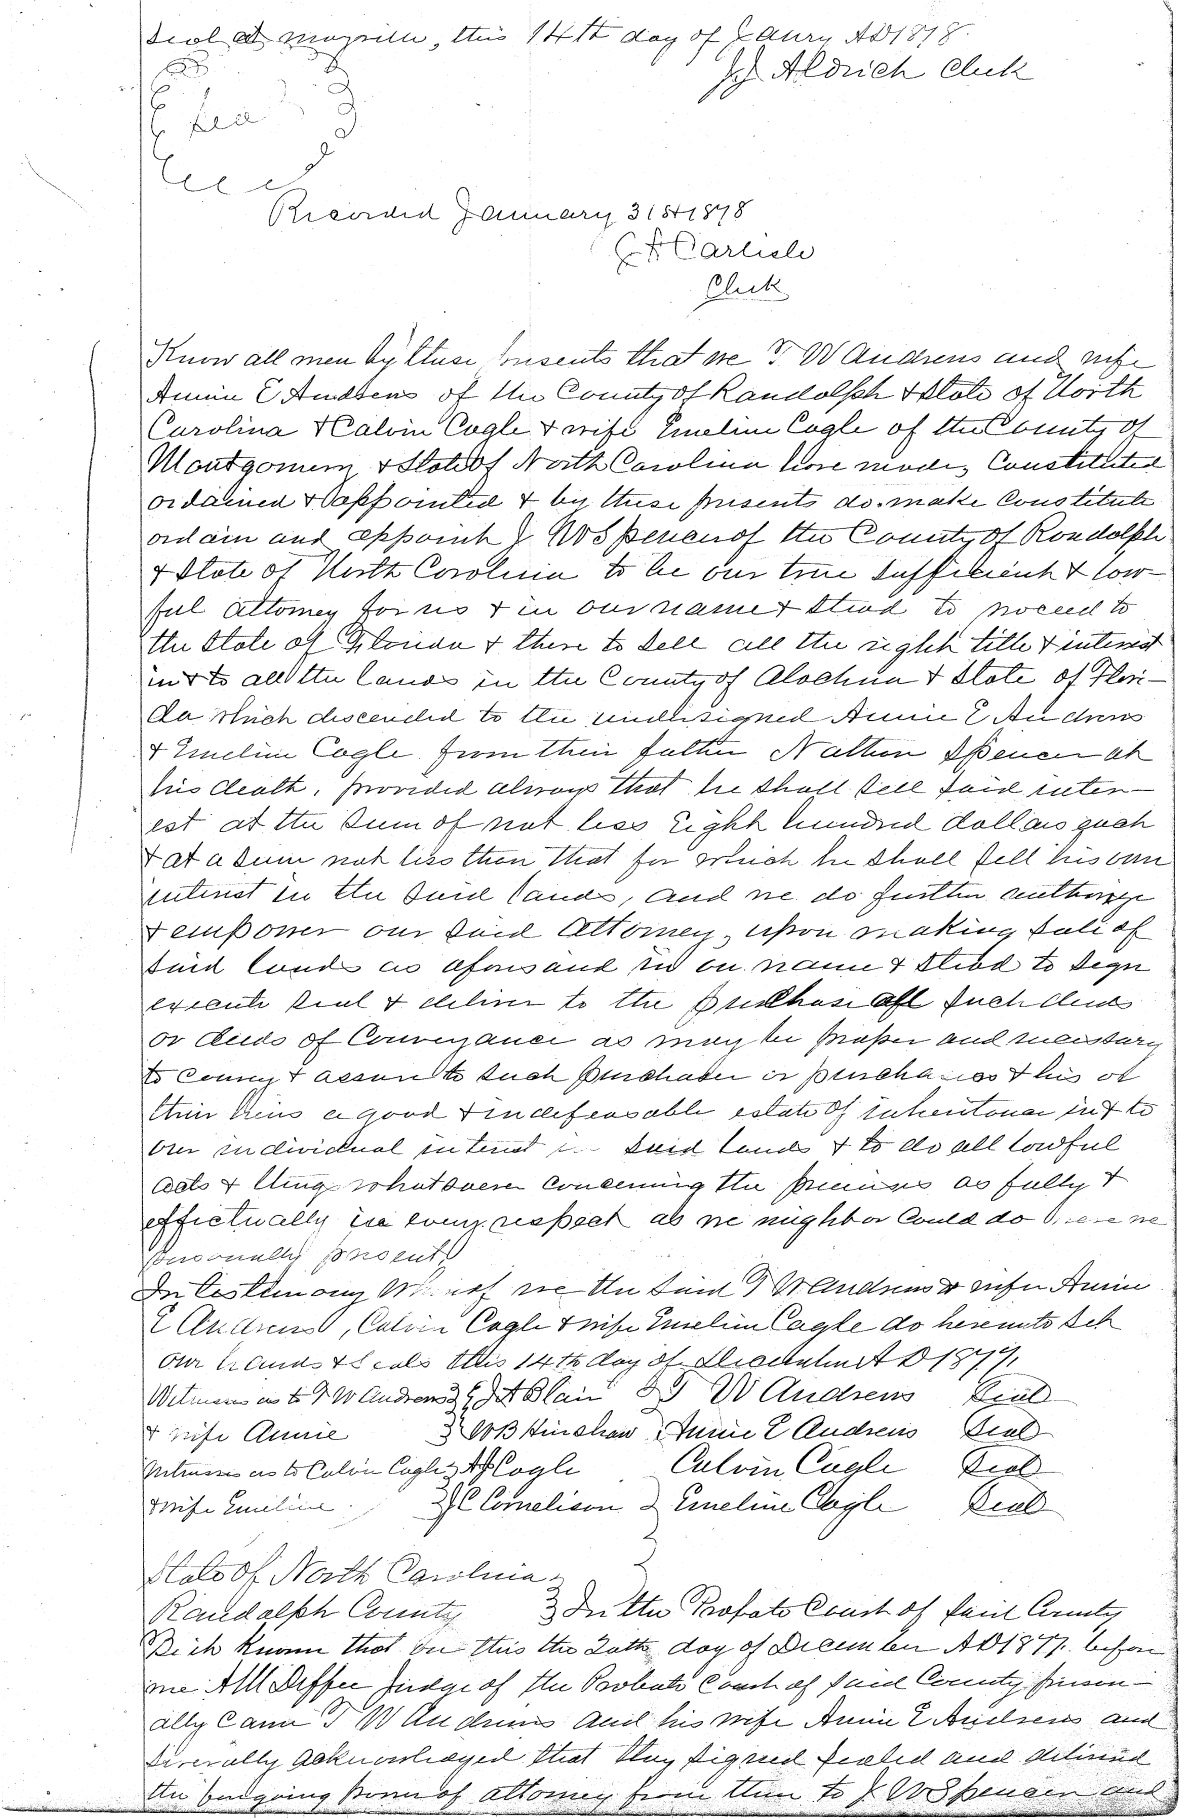 Seal at Mayville, this 14th day of Jaury AD 1878.
Aldrich Clerk
Seal
Recorded January 31st 1878
Carlisle
Clerk
Know all men by these presents that we T W Andrews and wife
Annie E Andrews of the County of Randolph & State of North
Carolina & Calvin Cagle & wife Emeline Cagle of the County of
Montgomery & State of North Carolina have made, Constituted
ordained & appointed & by these presents do make Constitute
ordain and appoint J W Spencer of the County of Randolph
& State of North Carolina to be our true sufficient & law-
ful attorney for us & in our name & stead to proceed to
the State of Florida & there to sell all the right title & interest
in & to all the lands in the County of Alachua & State of Flori-
da which descended to the undersigned Annie E Andrews
& Emeline Cagle from their father Nathan Spencer at
his death, provided always that he shall sell said inter-
est at the sum of not less Eight hundred dollars each
& at a sum not less then that for which he shall sell his own
interest in the said lands, and we do further authorize
& empower our said Attorney, upon making sale of
said lands as aforesaid in our name & stead to sign
execute seal & deliver to the such deed
or deeds of Conveyance as may be proper and necessary
to convey & assure to such purchaser or purchasers & his or
their heirs a good & indefeasable estate of inheritance in & to
our individual interest in said lands & to do all lawful
acts & things whatsoever concerning the premises as fully &
effectually in every respect as we might or Could do were we
personally present
In testimony Whereof we the said T W Andrews & wife Annie
E Andrews, Calvin Cagle & wife Emeline Cagle do hereunto set
our hands & seals this 14th day of December A D 1877,
Witnesses as to T W Andrews J A Blair T W Andrews Seal
& wife Annie W B Hinshaw Annie E Andrews Seal
Witnesses as to Calvin Cagle Cagle Calvin Cagle Seal
& wife Emeline. J C Cornelison Emeline Cagle Seal
State of North Carolina
Randolph County In the Probate Court of said County
Be it known that on this the day of December AD 1877. before
me Diffee Judge of the Probate Court of said County person-
ally Came T W Andrews and his wife Annie E Andrews and
severally acknowledged that they signed sealed and delivered
the foregoing power of attorney from them to J W Spencer and